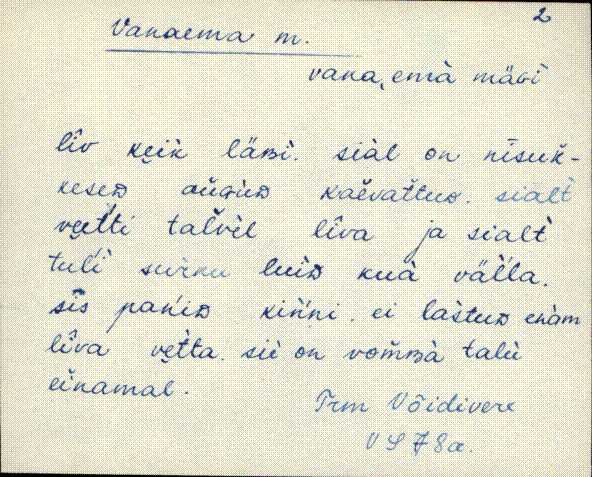 2
Vanaema m.
vana‿emà mäGi
lîv kẹik läʙi. siàl on nīsuk̆-
kesed aŭgud kaĕvattud. sialt
vẹt̆ti talvĕl līva ja sialt
tuli surnu luid kuà väl̆la.
sìs pańid kińni. ei lastud enàm
līva vẹtta. siè on vom̆mʙà talù
eìnamal.
Trm Võidivere
V S 78a.